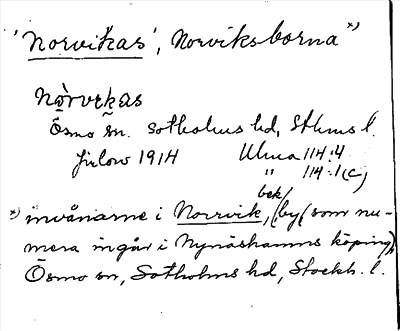 'Norvikas', Norviksborna" *)
Nòrvikas
Ösmo sn. Sotholms hd, Sthms l.
1914 Ulma 114:4
" 114:1(c)
bek/
*) invånarne i Norrvik, (by (som nu-
mera ingår i Nynäshamns köping),
Ösmo sn, Sotholms hd, Stockh. l.